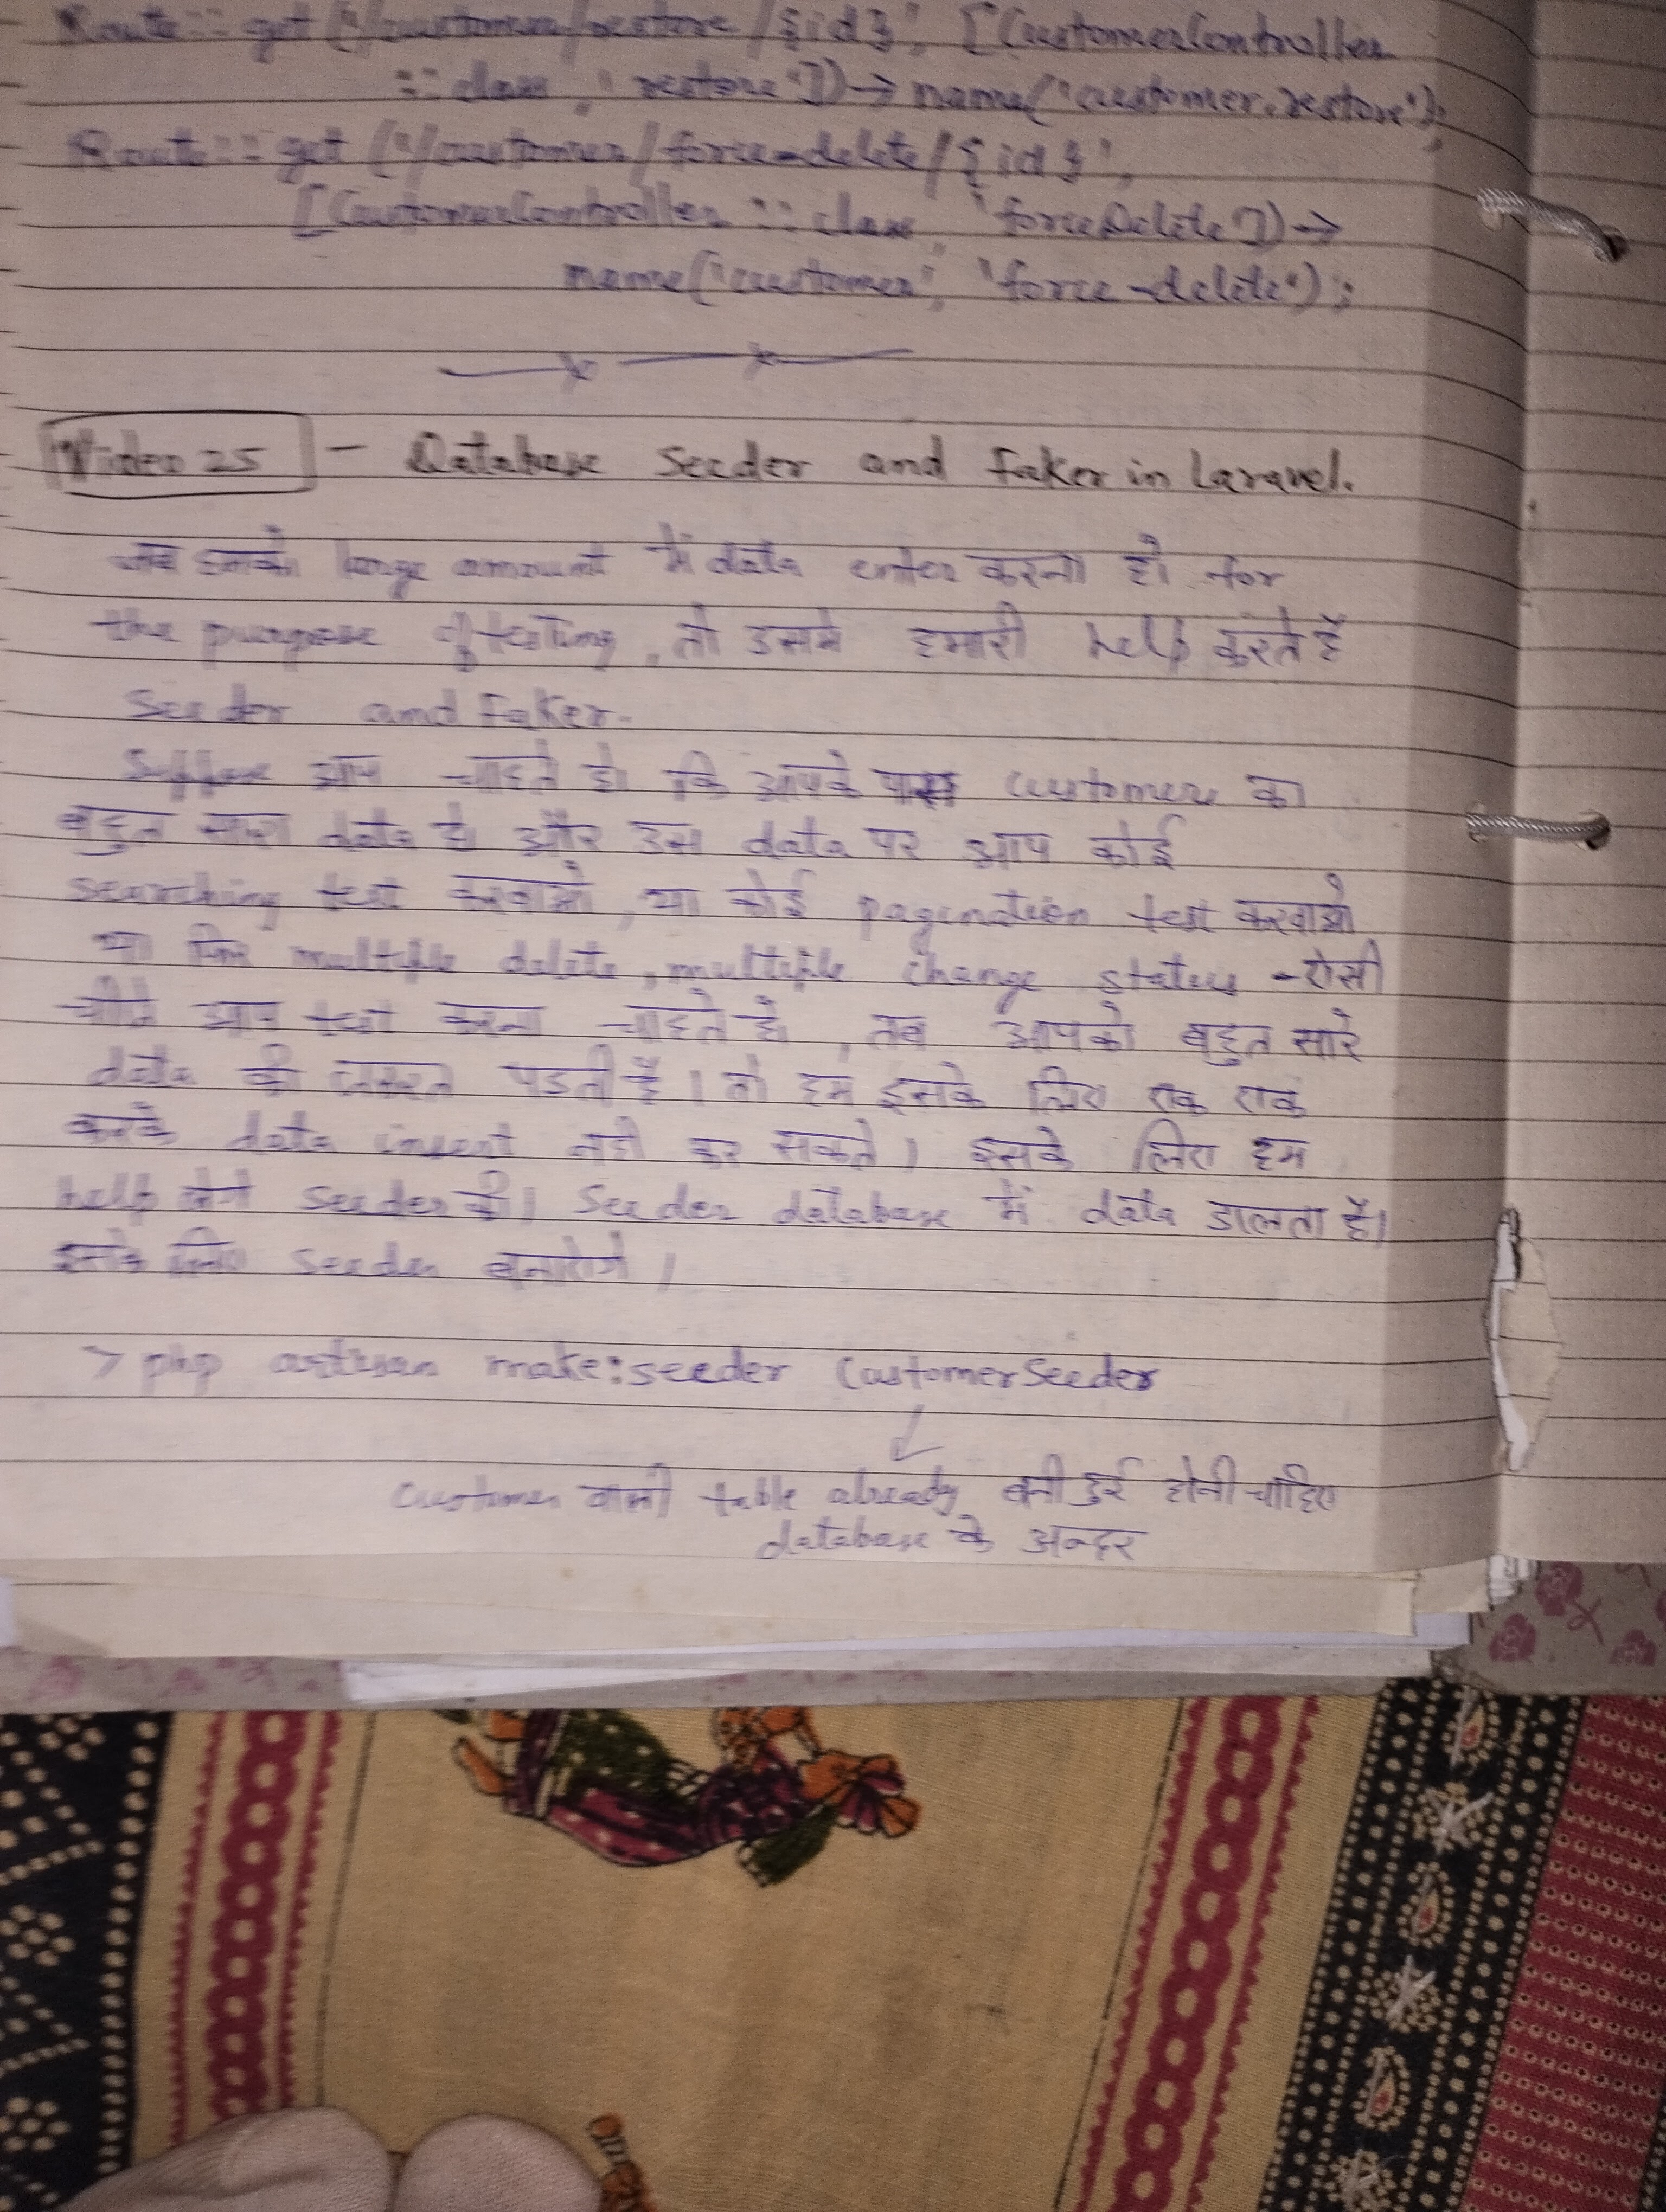 Route::get('/customer/restore/{id}', [CustomerController
::class, 'restore'])->name('customer.restore');
Route::get('/customer/force-delete/{id}',
[CustomerController::class, 'forceDelete'])->
name('customer', 'force-delete');
Video 25 - Database Seeder and Faker in Laravel.
जब हमको large amount में data enter करना हो for
the purpose of testing, तो उसमे हमारी help करते हैं
Seeder and Faker.
Suppose आप चाहते हो कि आपके पास customers का
बहुत सारा data हो और उस data पर आप कोई
searching test करवाओ, या कोई pagination test करवाओ
या फिर multiple delete, multiple change status - ऐसी
चीजे आप test करना चाहते हो, तब आपको बहुत सारे
data की जरूरत पडती है। तो हम इसके लिए एक एक
करके data insert नही कर सकते। इसके लिए हम
help लेगे seeder की। Seeder database में data डालता है।
इसके लिए seeder बनायेगे।
> php artisan make:seeder CustomerSeeder
customer वाली table already बनी हुई होनी चाहिए
database के अन्दर